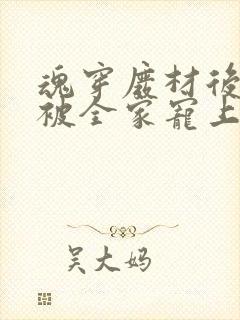 魂穿廢材後
被全家寵上
吴大妈